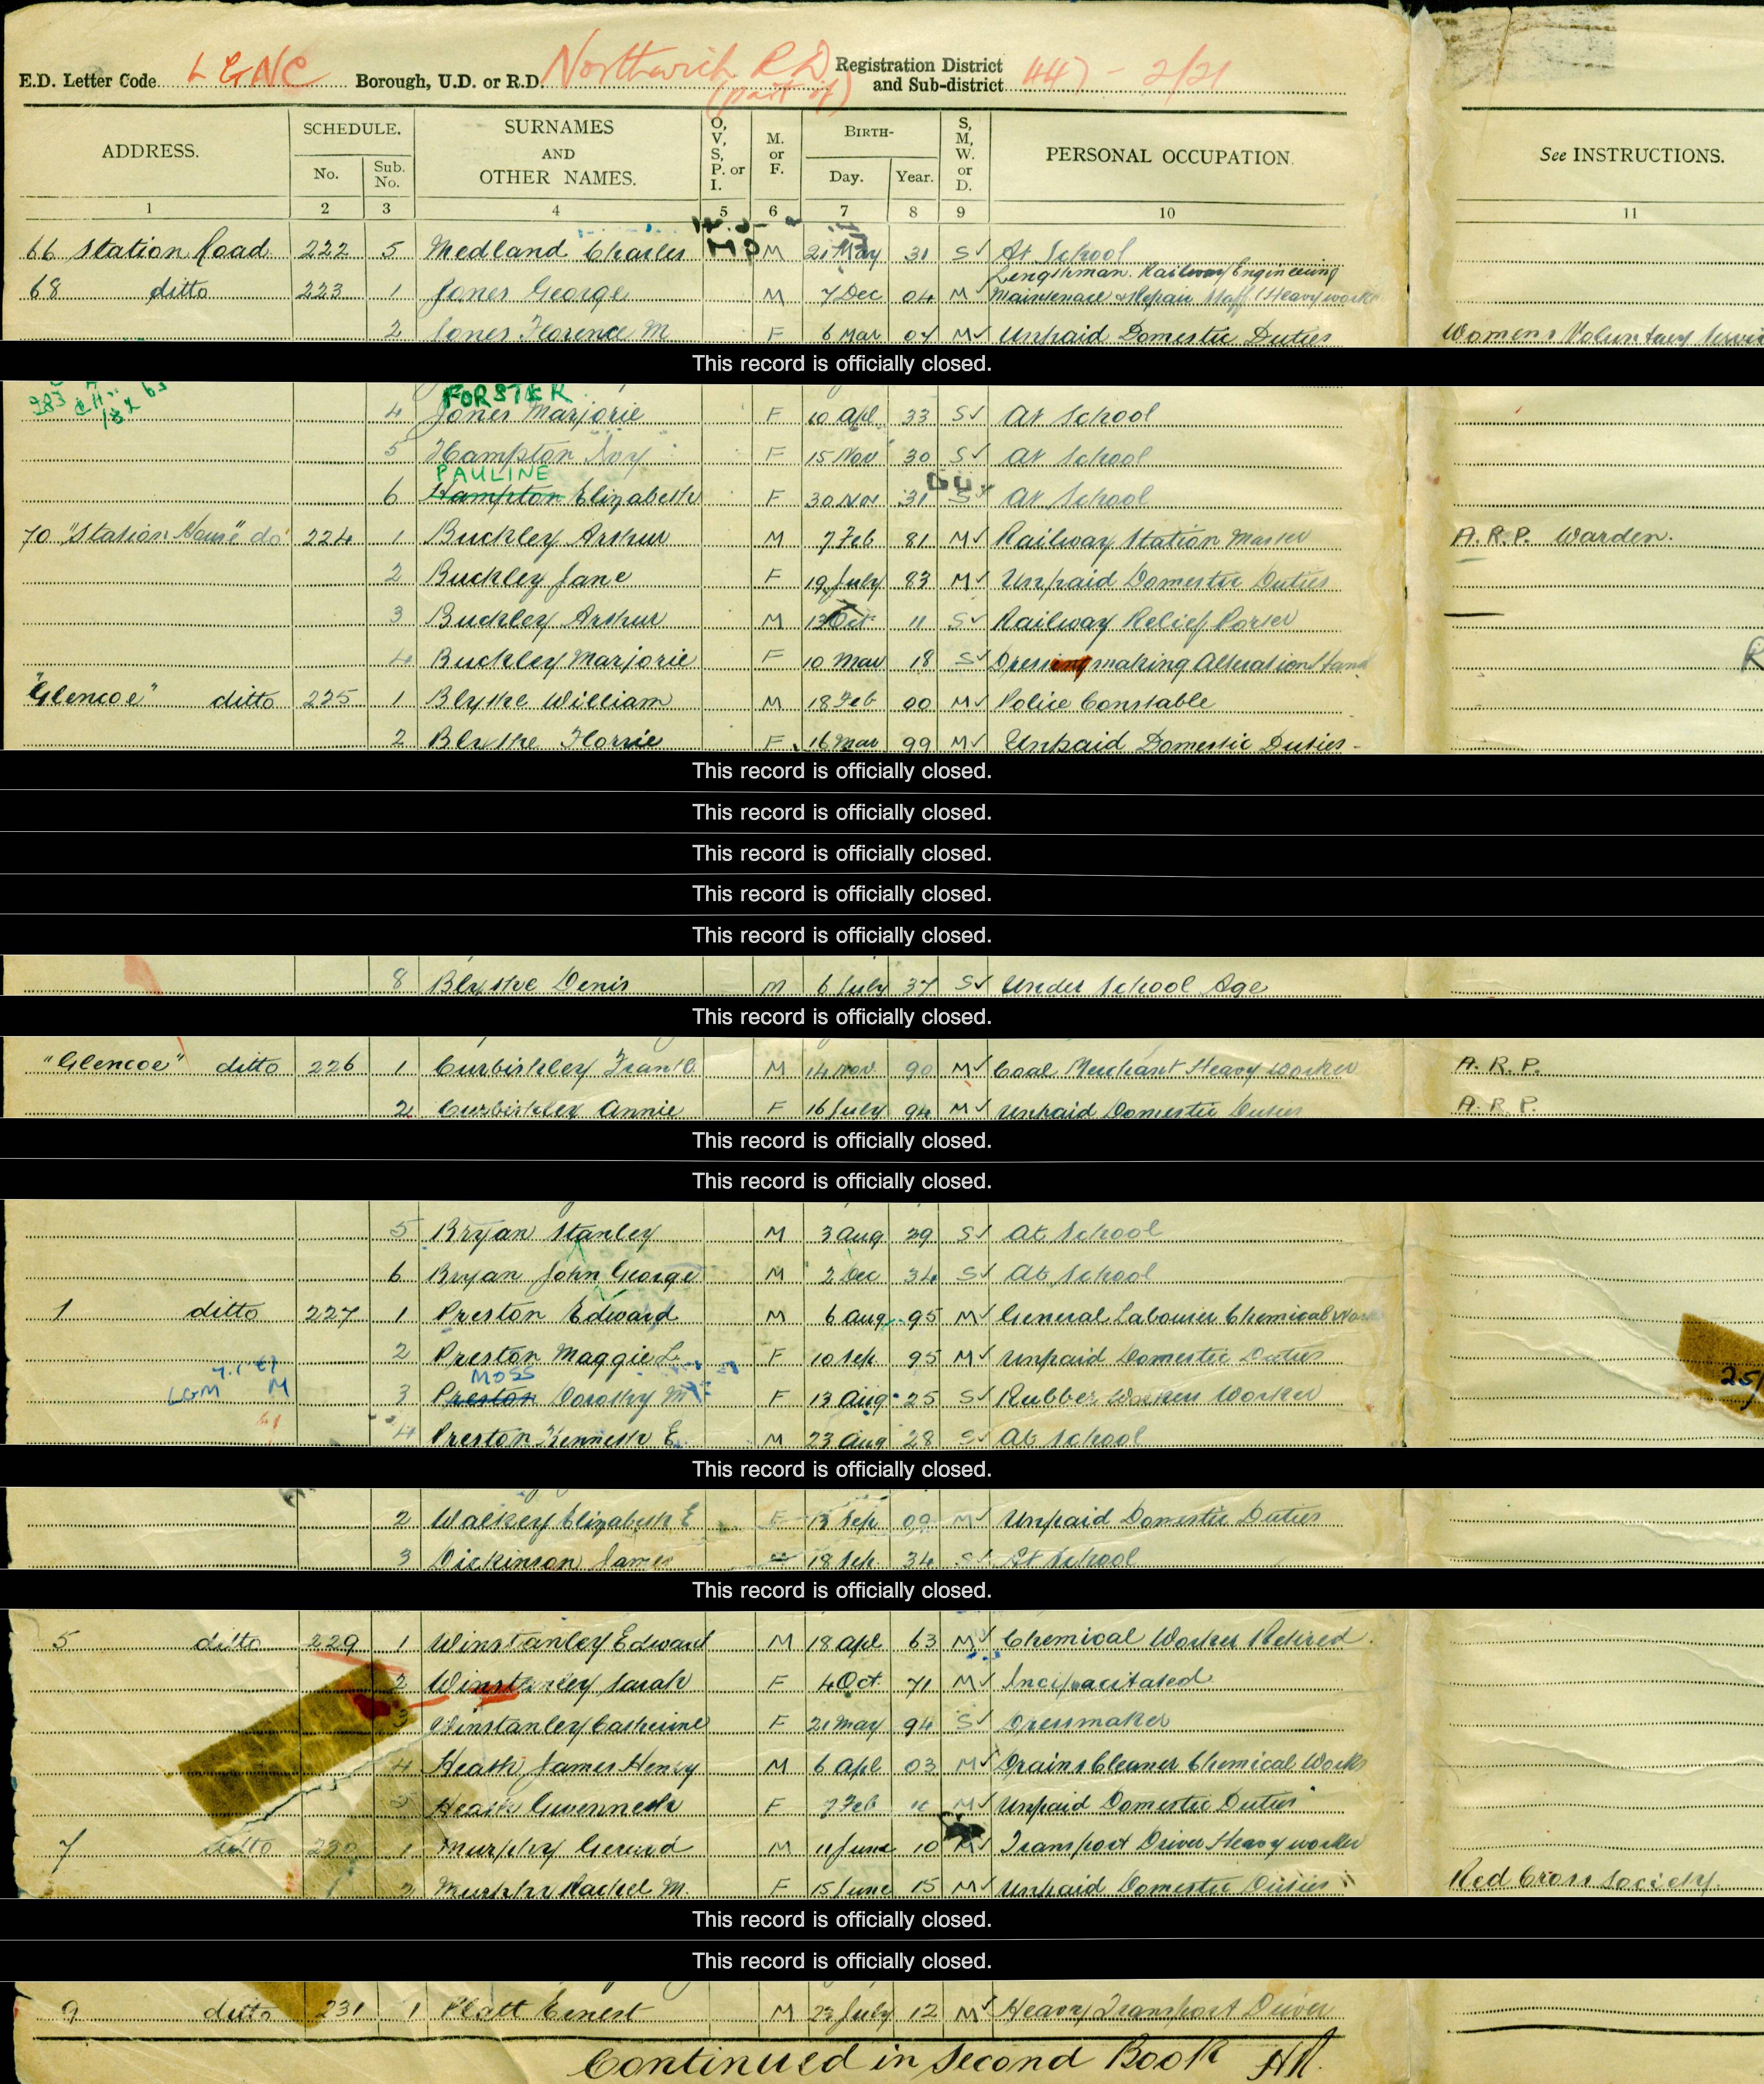 E.D. Letter Code LGNC Borough, U.D. or R.D. Northwich R D (part of) Registration District and Sub-district 447 - 2/21
ADDRESS. SCHEDULE. No. Sub. No. SURNAMES AND OTHER NAMES. O, V, S, P. or I. M. or F. BIRTH- Day. Year. S, M, W. or D. PERSONAL OCCUPATION. See INSTRUCTIONS.
1 2 3 4 5 6 7 8 9 10 11
66 Station Road 222 5 Medland Charles M 21 May 31 S ✓ At School
Lengthman. Railway Engineering
68 ditto 223 1 Jones George M 7 Dec 04 M Maintenace & Repair Staff (Heavy work
2 Jones Florence M F 6 Mar 07 M ✓ Unpaid Domestic Duties Womens Voluntary
This record is officially closed.
FORSTER
4 Jones Marjorie F 10 Apl 33 S ✓ At School
5 Hampton Ivy F 15 Nov 30 S ✓ At School
PAULINE
6 Hampton Elizabeth F 30 Nov 31 S ✓ At School
70 "Station House" do 224 1 Buckley Arthur M 7 Feb 81 M ✓ Railway Station Master A.R.P. Warden.
2 Buckley Jane F 19 July 83 M ✓ Unpaid Domestic Duties
3 Buckley Arthur M 13 Oct 11 S ✓ Railway Relief Porter
4 Buckley Marjorie F 10 Mar 18 S ✓ Dressmaking Alteration Hand R
"Glencoe" ditto 225 1 Blythe William M 18 Feb 00 M ✓ Police Constable
2 Blythe Florrie F 16 Mar 99 M ✓ Unpaid Domestic Duties -
This record is officially closed.
This record is officially closed.
This record is officially closed.
This record is officially closed.
This record is officially closed.
8 Blythe Denis M 6 July 37 S ✓ Under School Age
This record is officially closed.
"Glencoe" ditto 226 1 Curbishley Frank M 14 Nov 90 M ✓ Coal Merchant Heavy Worker A.R.P.
2 Curbishley Annie F 16 July 94 M ✓ Unpaid Domestic Duties A.R.P.
This record is officially closed.
This record is officially closed.
5 Bryan Stanley M 3 Aug 29 S ✓ At School
6 Bryan John George M 2 Dec 34 S ✓ At School
1 ditto 227 1 Preston Edward M 6 Aug 95 M ✓ General Labourer Chemical
2 Preston Maggie L F 10 Sep 95 M ✓ Unpaid Domestic Duties
MOSS
LGM M 3 Preston Dorothy M F 13 Aug 25 S ✓ Rubber Worker 25
4 Preston Kenneth E. M 23 Aug 28 S ✓ At School
This record is officially closed.
2 Walkey Elizabeth E F 13 Sep 09 M ✓ Unpaid Domestic Duties
3 Dickinson James 18 Feb 34 S ✓ At School
This record is officially closed.
5 ditto 229 1 Winstanley Edward M 18 Apl 63 M ✓ Chemical Worker Retired.
2 Winstanley Sarah F 4 Oct 71 M ✓ Incipacitated
3 Winstanley Catherine F 21 May 94 S ✓ Dressmaker
4 Heath James Henry M 6 Apl 03 M ✓ Drains Cleaner Chemical Works
5 Heath Gwenneth F 7 Feb M ✓ Unpaid Domestic Duties
7 ditto 230 1 Murphy Gerard M 11 June 10 M ✓ Transport Driver Heavy worker
2 Murphy Rachel M. F 15 June 15 M ✓ Unpaid Domestic Duties Red Cross Society.
This record is officially closed.
This record is officially closed.
9 ditto 231 1 Platt Ernest M 23 July 12 M ✓ Heavy Transport Driver
Continued in Second Book